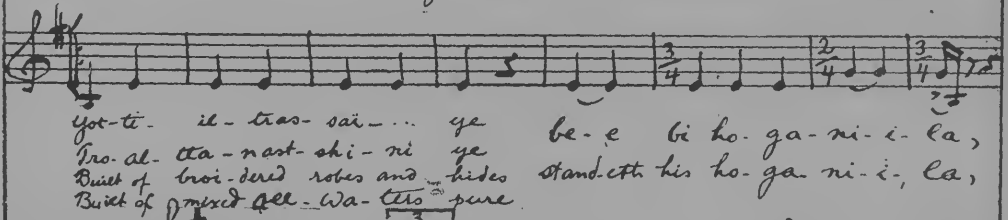 3/4 2/4 3/4
Yot-ti- il-tras-sai-... ye be-e bi ho-ga-ni-i-la,
Tro-al-tta-nast-shi-ni ye
Built of broi-dered robes and hides stand-eth his ho-ga-ni-i-, la,
Built of mixed all-wa-ters pure
3